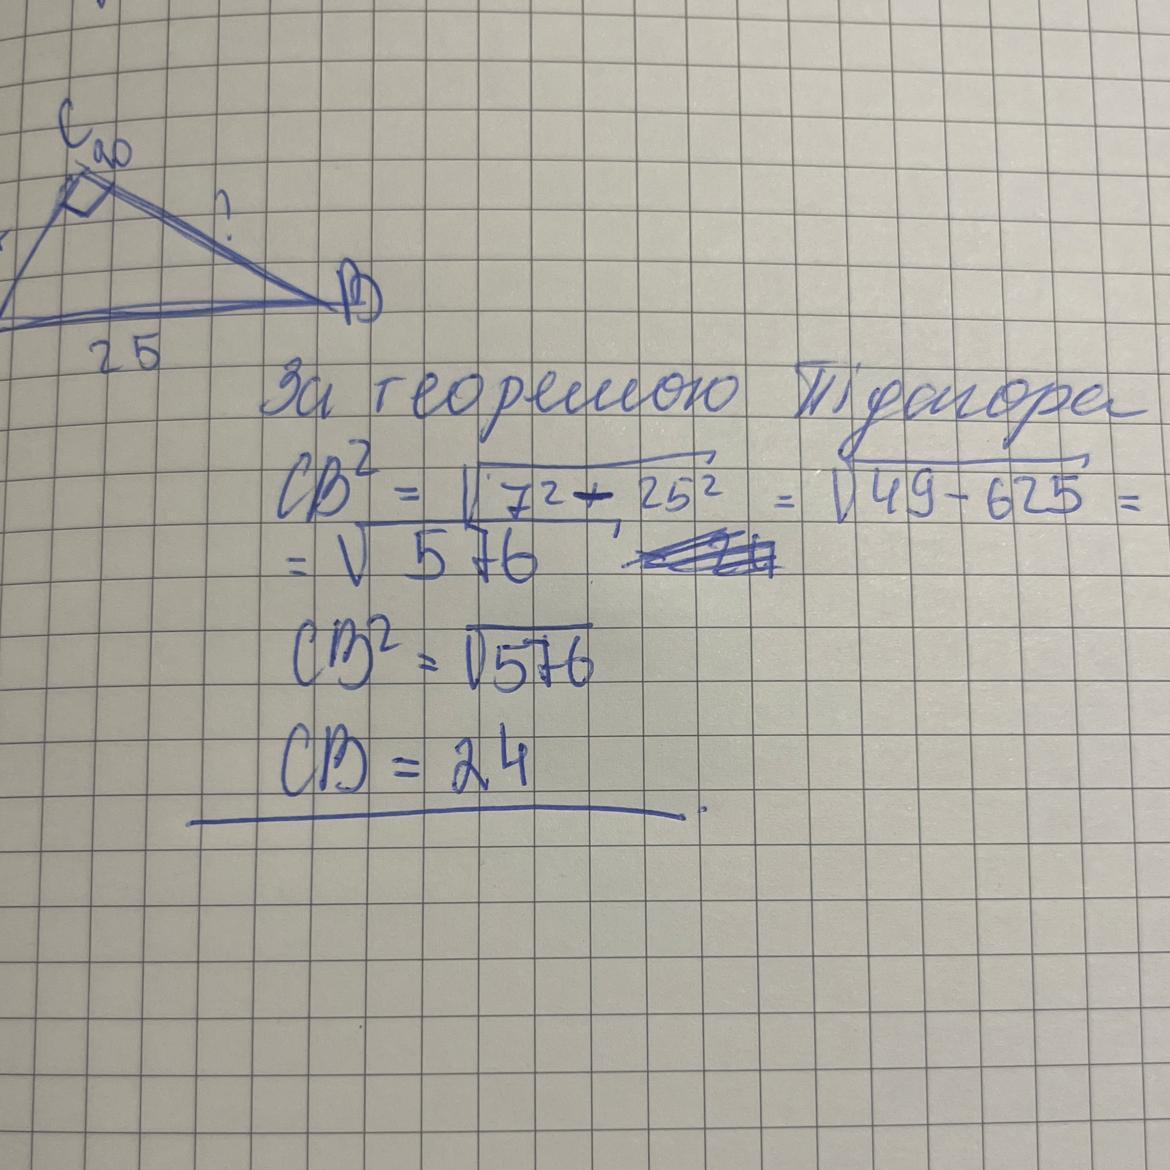 C
90
?
B
25
За теоремою Піфагора
CB² = √7² - 25² = √49 - 625 =
= √576
CB² = √576
CB = 24